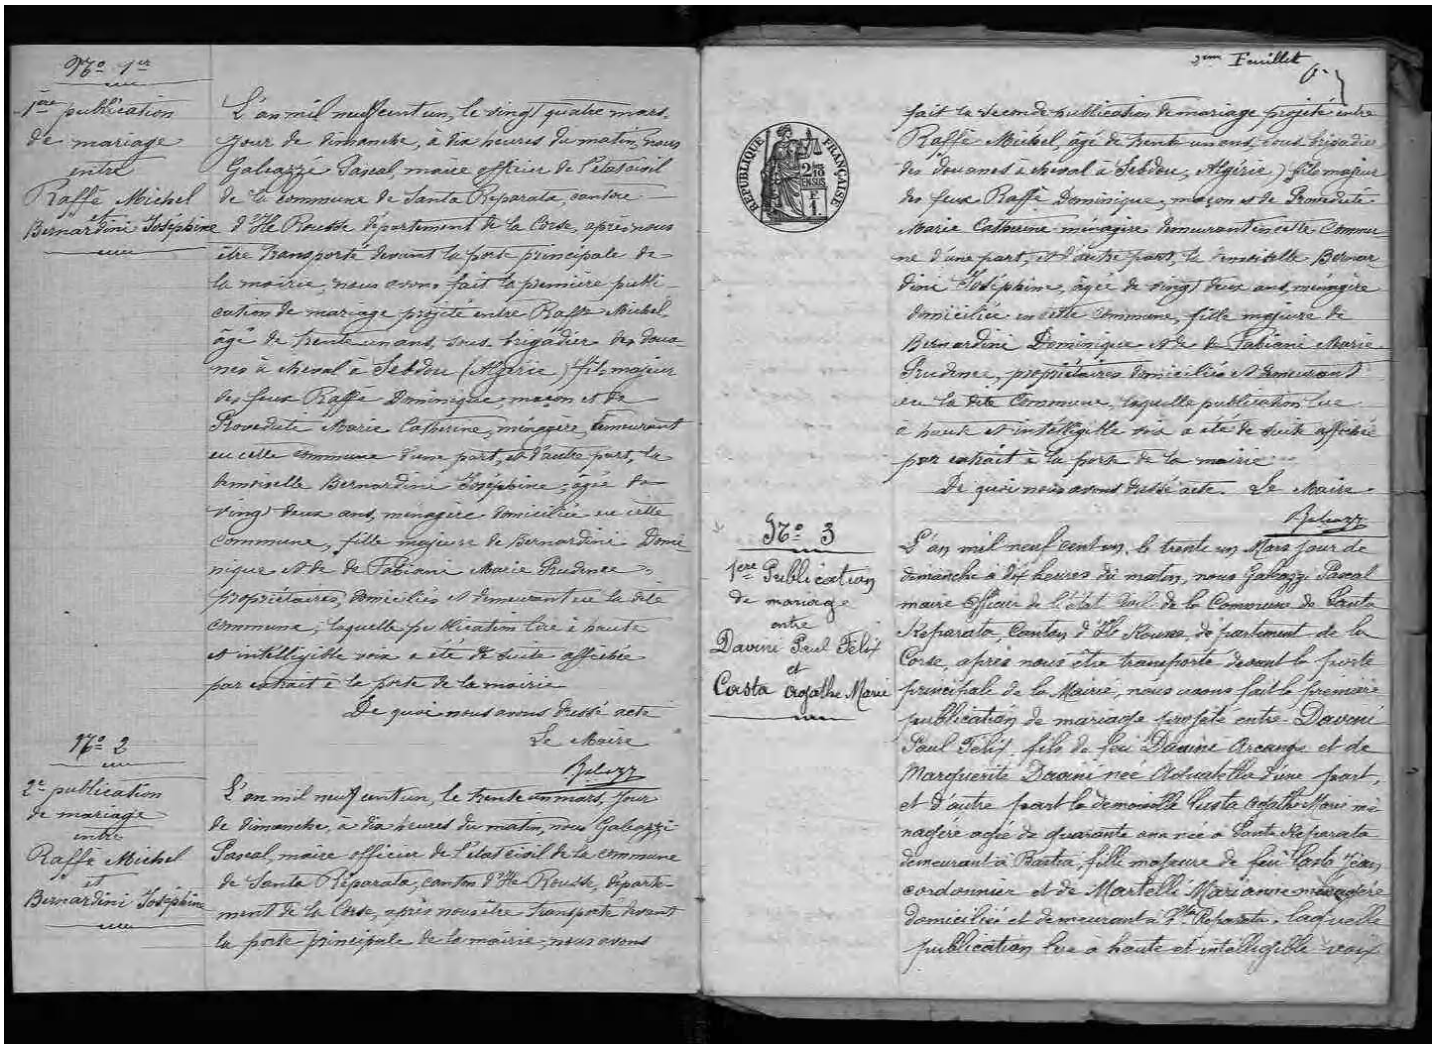 No 1er
1ère publication
de mariage
entre
Raffè Michel
et
Bernardini Joséphine
L'an mil neuf cent un, le vingt quatre mars,
jour de dimanche, à dix heures du matin, nous
Galeazzi Pascal, maire officier de l'état civil
de la commune de Santa Reparata, canton
d'Ile Rousse département de la Corse, après nous
être transporté devant la porte principale de
la mairie, nous avons fait la première publi-
cation de mariage projeté entre Raffè Michel
âgé de trente un ans, sous brigadier des doua-
nes à cheval à Sebdou (Algérie) fils majeur
des feux Raffè Dominique, maçon et de
Marie Catherine, ménagère, demeurant
en cette commune d'une part, et d'autre part, la
demoiselle Bernardini Joséphine, âgée de
vingt deux ans, ménagère domiciliée en cette
commune, fille majeure de Bernardini Domi
nique et de de Fabiani Marie Prudence,
propriétaires, domiciliés et demeurant en la dite
commune, laquelle publication lue à haute
et intelligible voix a été de suite affichée
par extrait à la porte de la mairie
De quoi nous avons dressé acte
Le Maire
No 2
2e publication
de mariage
entre
Raffè Michel
et
Bernardini Joséphine
L'an mil neuf cent un, le trente un mars, jour
de dimanche, à dix heures du matin, nous Galeazzi
Pascal, maire officier de l'état civil de la commune
de Santa Réparata, canton d'Ile Rousse, départe-
ment de la Corse, après nous être transporté devant
la porte principale de la mairie nous avons
2em Feuillet
RÉPUBLIQUE FRANÇAISE
fait la seconde publication de mariage projeté entre
Raffè Michel, âgé de trente un ans, sous brigadier
des douanes à cheval à Sebdou, Algérie) fils majeur
des feux Raffè Dominique, maçon et de
Marie Catherine ménagère demeurant en cette Commu-
ne d'une part, et d'autre part, la demoiselle Bernar-
dini Joséphine, âgée de vingt deux ans, ménagère
domiciliée en cette commune, fille majeure de
Bernardini Dominique et de de Fabiani Marie
Prudence, propriétaires domiciliés et demeurant
en la dite Commune, laquelle publication lue
à haute et intelligible voix a été de suite affichée
par extrait à la porte de la mairie
De quoi nous avons dressé acte. Le Maire
No 3
1ere Publication
de mariage
entre
Davini Paul Félix
et
Costa Agathe Marie
L'an mil neuf cent un, le trente un Mars jour de
dimanche à dix heures du matin, nous Galeazzi Pascal
maire officier de l'état civil de la Commune de Santa
Reparata, Canton d'Ile Rousse, département de la
Corse, après nous être transporté devant la porte
principale de la Mairie, nous avons fait la première
publication de mariage projeté entre Davini
Paul Félix, fils de feu Davini Arcange et de
Marguerite Davini née d'une part,
et d'autre part la demoiselle Costa Agathe Marie mé
nagère agée de quarante ans née à Santa Reparata
demeurant à Bastia, fille majeure de feu Costa Jean
cordonnier et de Martelli Marianne ménagère
domiciliée et demeurant à Sta Reparata, laquelle
publication lue à haute et intelligible voix